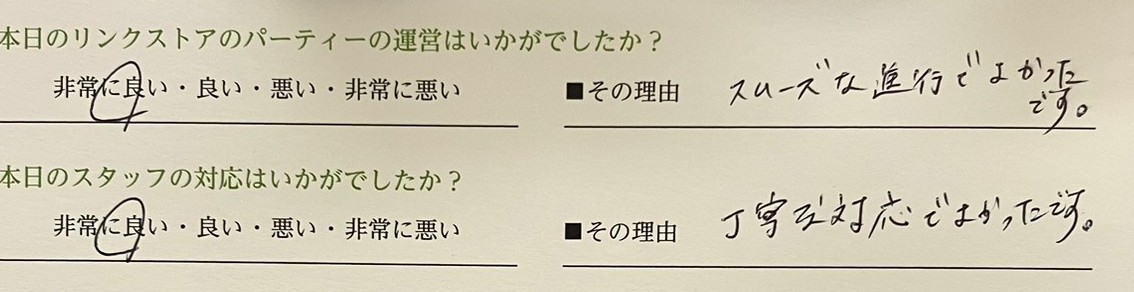 本日のリンクストアのパーティーの運営はいかがでしたか？
非常に良い・良い・悪い・非常に悪い
■その理由
スムーズな進行でよかった
です。
本日のスタッフの対応はいかがでしたか？
非常に良い・良い・悪い・非常に悪い
■その理由
丁寧な対応でよかったです。